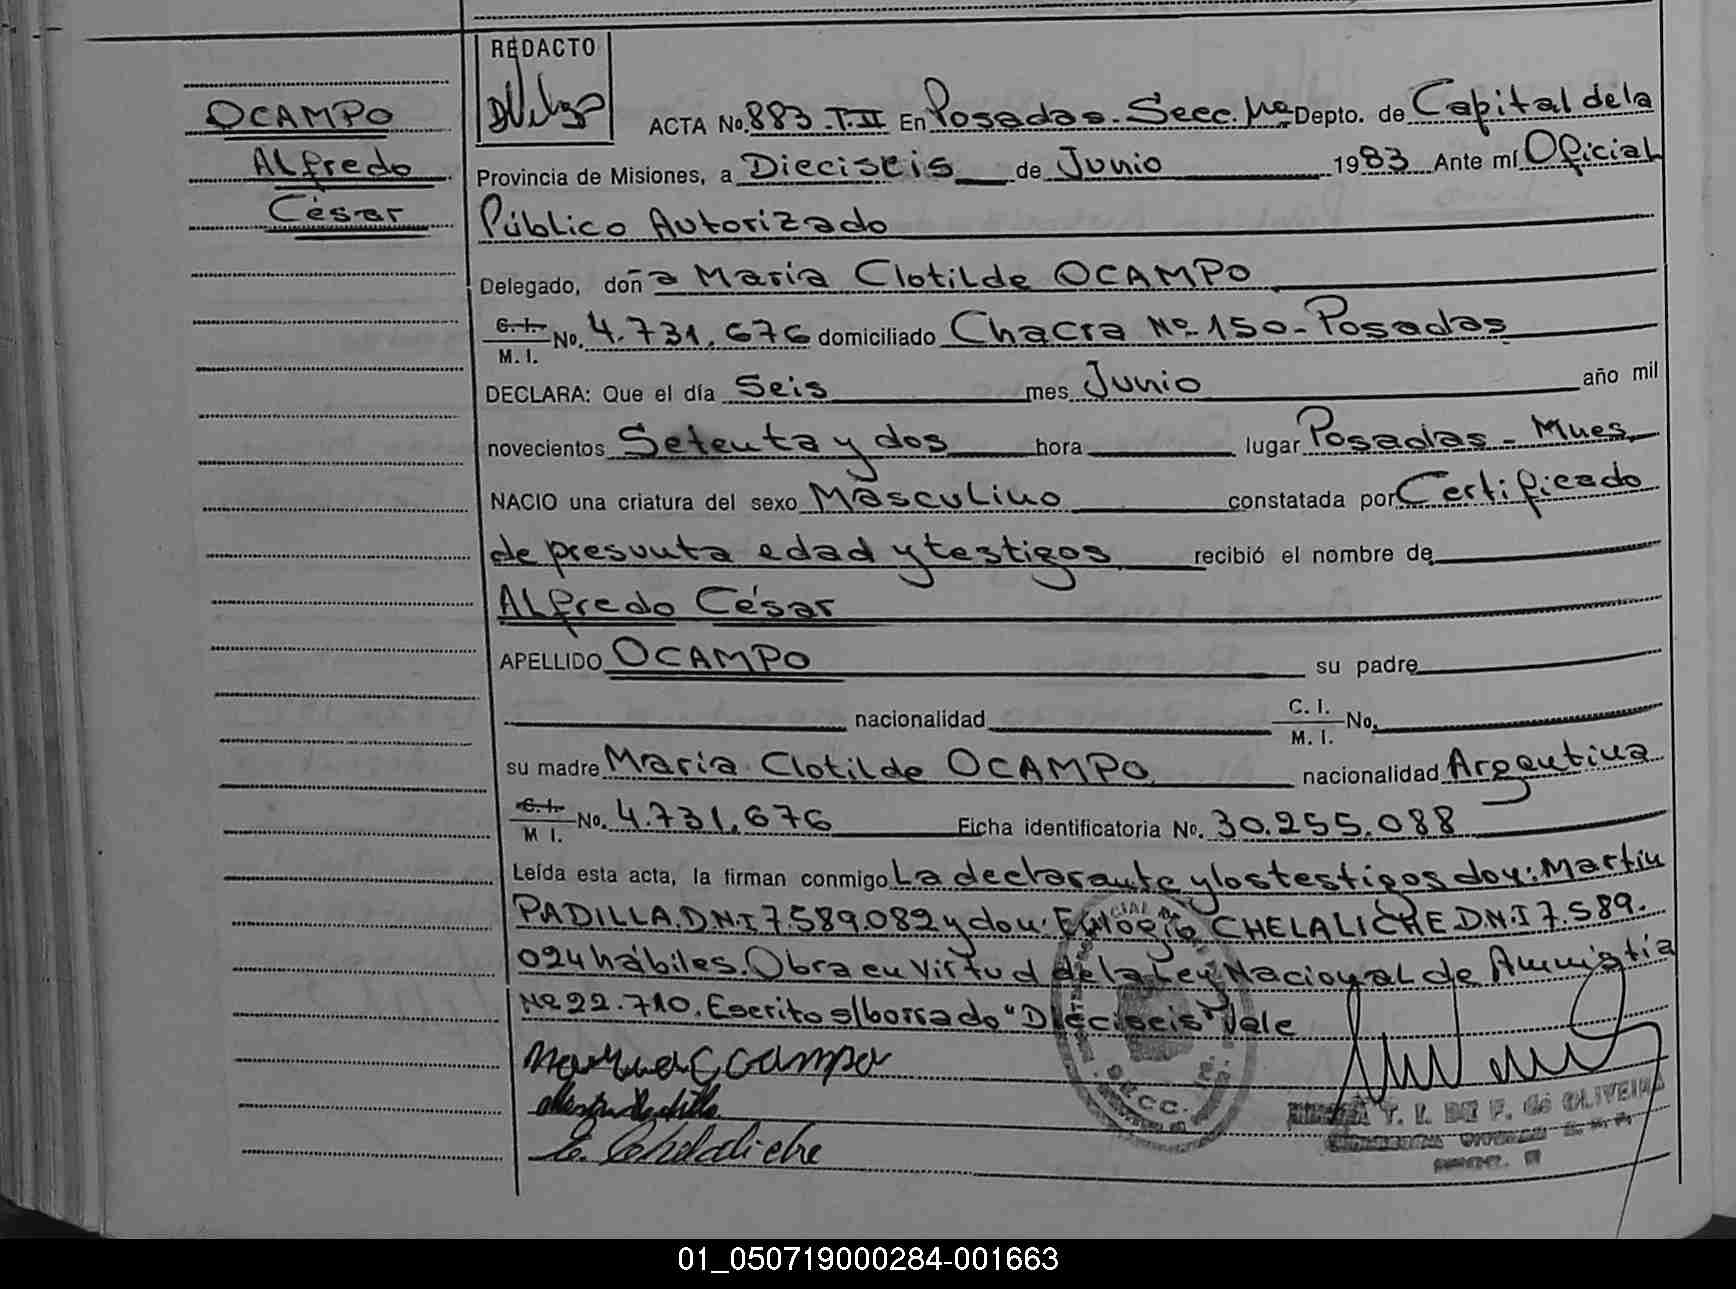 REDACTO
OCAMPO
Alfredo
César
ACTA No. 883. T. II En Posadas. Secc. 1ra Depto. de Capital de la
Provincia de Misiones, a Dieciseis de Junio 1983 Ante mí Oficial
Público Autorizado
Delegado, doña María Clotilde OCAMPO
C. I. / M. I. No. 4.731.676 domiciliado Chacra Nº 150 - Posadas
DECLARA: Que el día Seis mes Junio año mil
novecientos Setenta y dos hora lugar Posadas - Mnes.
NACIO una criatura del sexo Masculino constatada por Certificado
de presunta edad y testigos recibió el nombre de
Alfredo César
APELLIDO OCAMPO su padre
nacionalidad C. I. / M. I. No.
su madre María Clotilde OCAMPO nacionalidad Argentina
C. I. / M I. No. 4.731.676 Ficha identificatoria No. 30.255.088
Leída esta acta, la firman conmigo La declarante y los testigos don: Martin
PADILLA D.N.I 7.589.082 y don: Eulogio CHELALICHE D.N.I 7.589.
024 hábiles. Obra en Virtud de la Ley Nacional de Amnistia
Nº 22.710. Escrito s/borrado "Dieciseis" Vale
E. Chelaliche
T. I. DE F. de OLIVEIRA
01_050719000284-001663